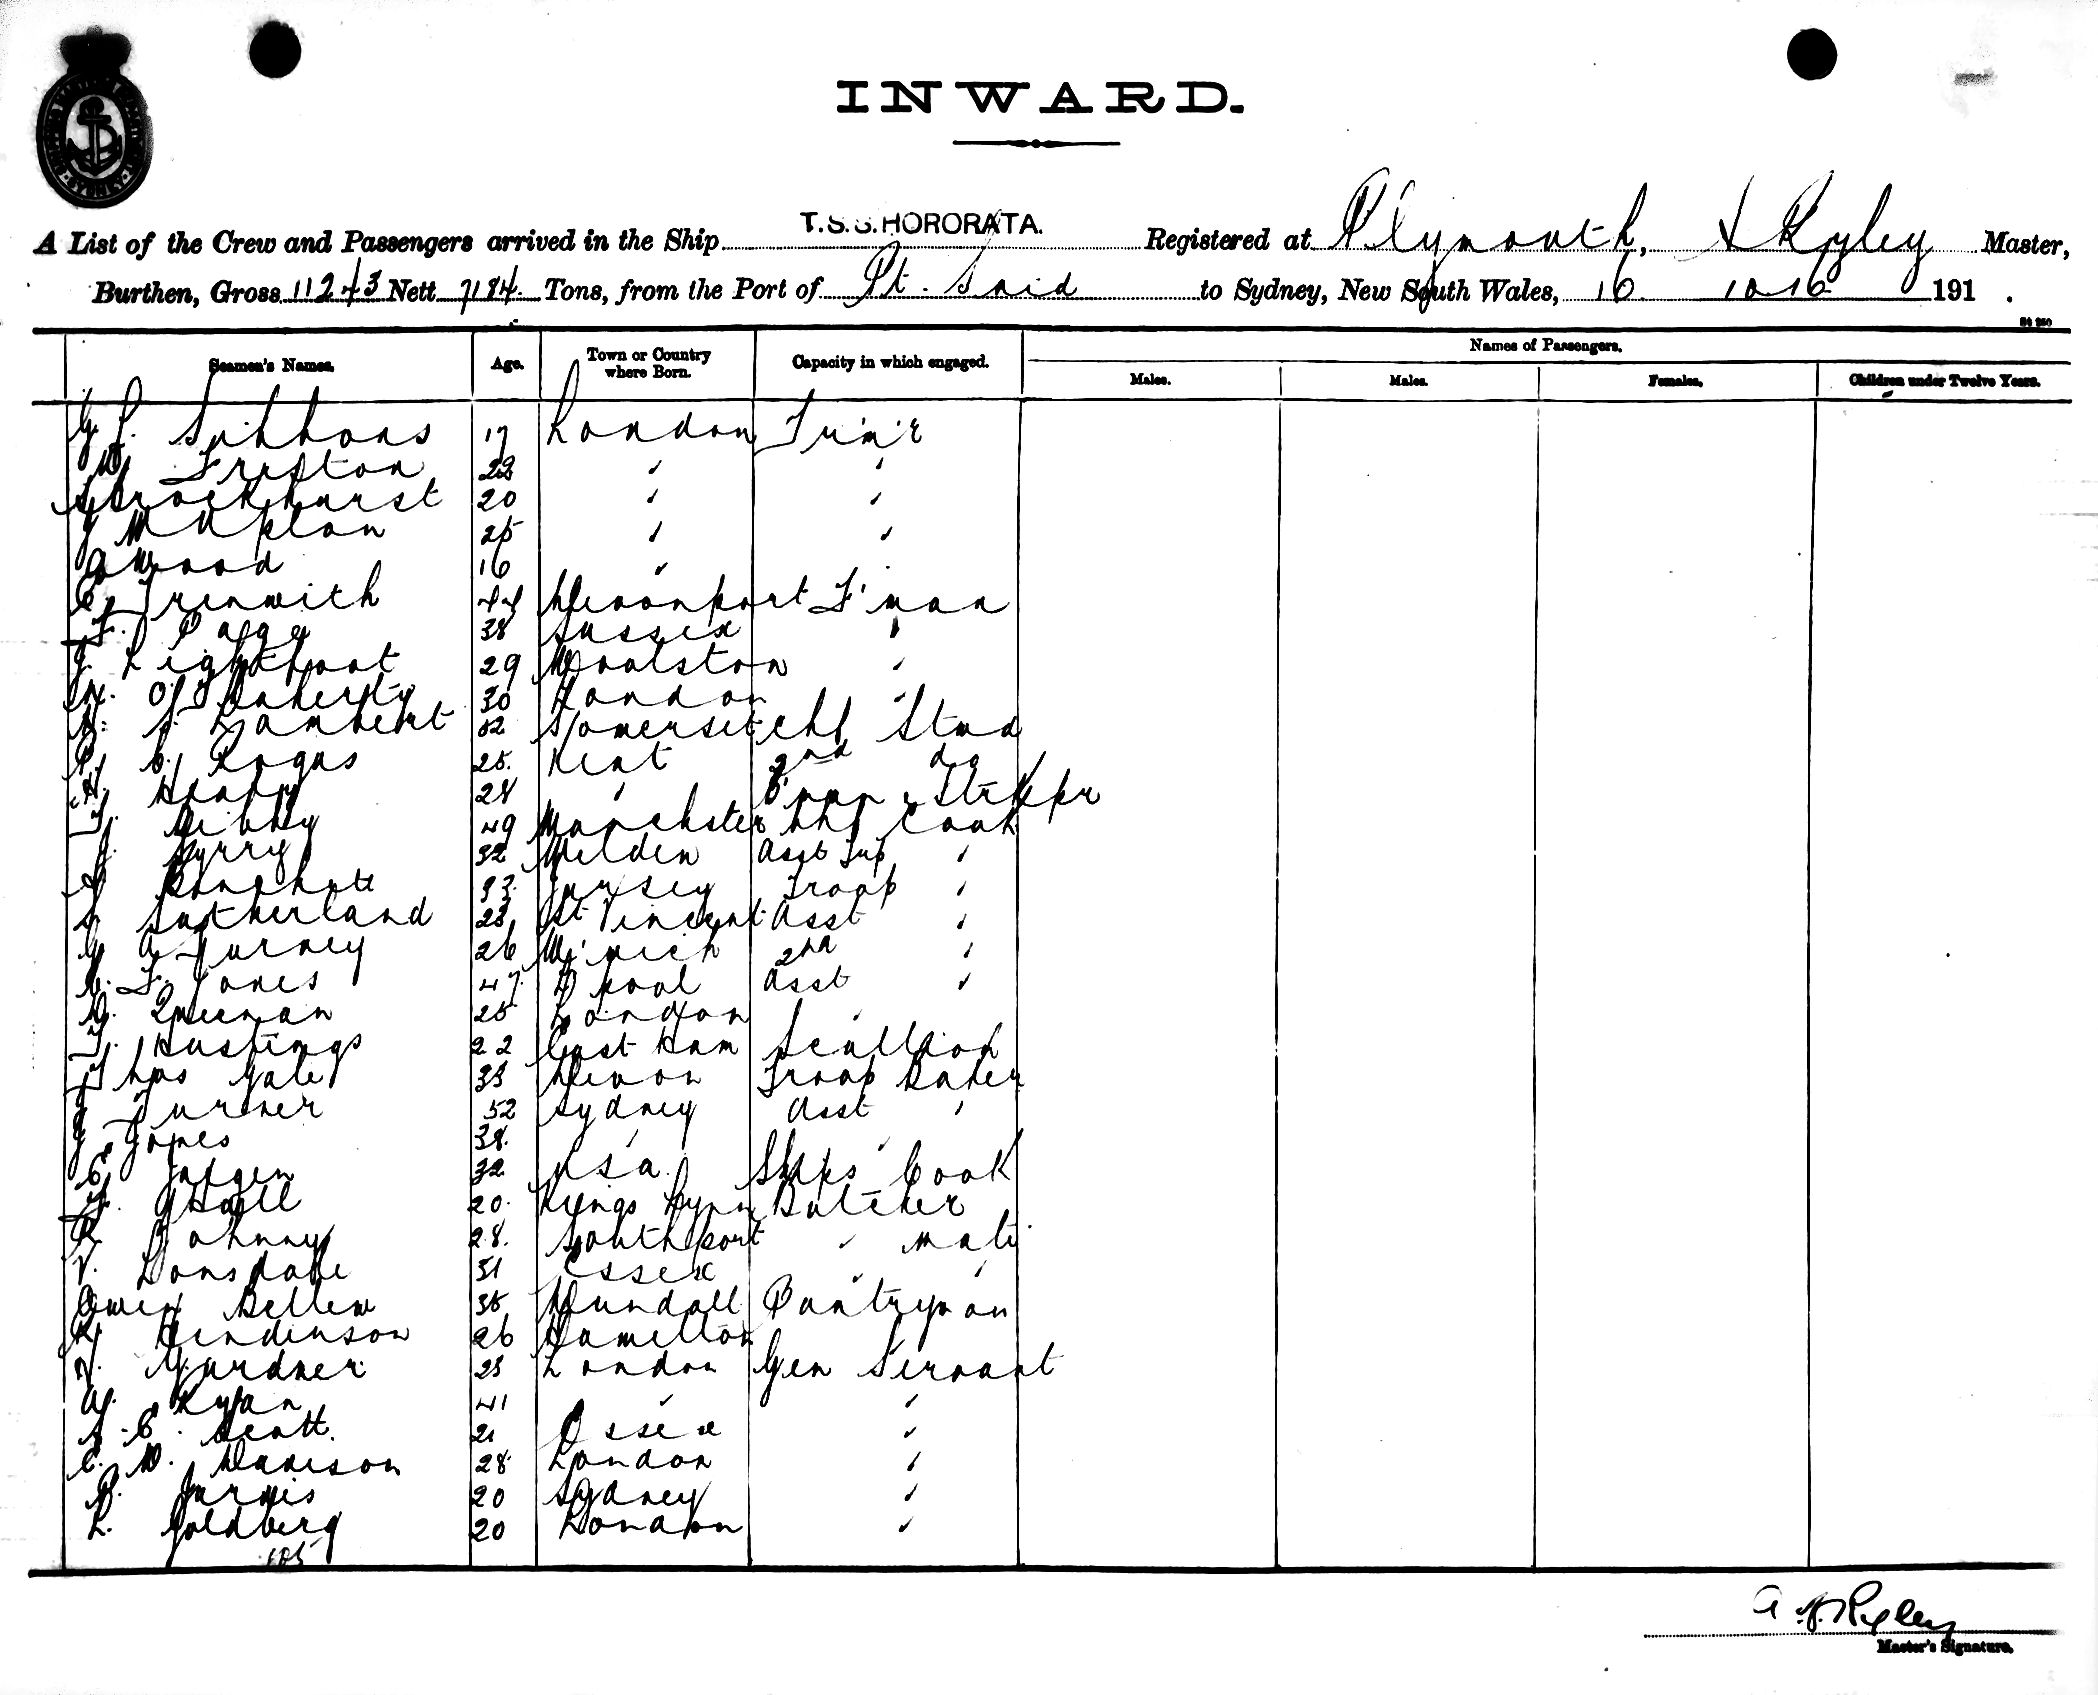 INWARD.
A List of the Crew and Passengers arrived in the Ship T.S.S. HORORATA. Registered at Plymouth, Ryley Master,
Burthen, Gross 11243 Nett 7184. Tons, from the Port of Pt. Said to Sydney, New South Wales, 16 10 16 191 .
Seamen's Names. Age. Town or Country where Born. Capacity in which engaged. Names of Passengers.
Males. Males. Females. Children under Twelve Years.
17 London Trim'r
W. Friston 22 " "
Brockhurst 20 " "
J W Upton 25 " "
A Wood 16 " "
C. Trenwith 44 Devonport F'man
F. Page 38 Sussex "
J. Lightfoot 29 Woolston "
O'Doherty 30 London "
Lambert 52 Somerset Chf Stwd
25. Kent 2nd do
H. 28 " Strkpr
49 Manchester Chf Cook
32 Asst Trp "
33. Jersey Troop "
Sutherland 23 St Vincent Asst "
G A Turney 26 W'wich 2nd "
F. Jones 47. L'pool Asst "
Queenan 25 London "
F. Hustings 22 East Ham Scullion
Thos Yale 33 Devon Troop Baker
J Turner 52 Sydney Asst "
J. Jones 38. " "
C. Jurgen 32 USA. Ships Cook
F. Hall 20. Kings Lynn Butcher
R Johnny 28. Southport " mate
V. Lonsdale 31 Essex " "
Owen Bellew 35 Dundalk Pantryman
Henderson 26 Hamilton
V. Gardner 23 London Gen Servant
W. Ryan 41 " "
A. C. Scott. 21 Essex "
C. W. Davison 28 London "
P. Jarvis 20 Sydney "
L. Goldberg 20 London "
105
A. H. Ryley
Master's Signature.